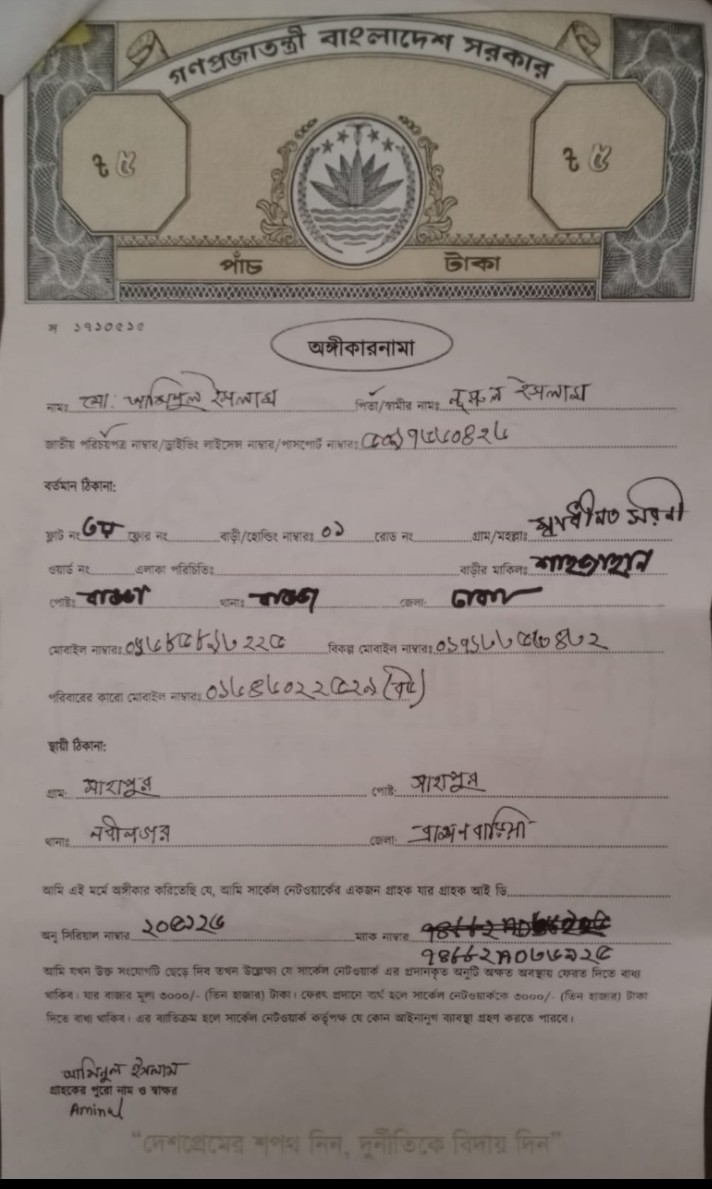 গণপ্রজাতন্ত্রী বাংলাদেশ সরকার
৳ ৫ ৳ ৫
পাঁচ টাকা
অঙ্গীকারনামা
নামঃ মো: আমিনুল ইসলাম পিতা/স্বামীর নামঃ নূরুল ইসলাম
জাতীয় পরিচয়পত্র নাম্বার/ড্রাইভিং লাইসেন্স নাম্বার/পাসপোর্ট নাম্বারঃ
বর্তমান ঠিকানা:
ফ্লাট নং ৩য় ফ্লোর নং বাড়ী/হোল্ডিং নাম্বারঃ ০১ রোড নং গ্রাম/মহল্লাঃ সরনী
ওয়ার্ড নং এলাকা পরিচিতিঃ বাড়ীর মালিকঃ শাহজাহান
পোষ্টঃ বাড্ডা থানাঃ বাড্ডা জেলা: ঢাকা
মোবাইল নাম্বারঃ বিকল্প মোবাইল নাম্বারঃ
পরিবারের কারো মোবাইল নাম্বারঃ
স্থায়ী ঠিকানা:
গ্রাম: সাহাপুর পোষ্ট: সাহাপুর
থানাঃ নবীনগর জেলা: ব্রাহ্মনবাড়িয়া
আমি এই মর্মে অঙ্গীকার করিতেছি যে, আমি সার্কেল নেটওয়ার্কের একজন গ্রাহক যার গ্রাহক আই ডি
অনু সিরিয়াল নাম্বার ম্যাক নাম্বার
আমি যখন উক্ত সংযোগটি ছেড়ে দিব তখন উল্লেখ্য যে সার্কেল নেটওয়ার্ক এর প্রদানকৃত অনুটি অক্ষত অবস্থায় ফেরত দিতে বাধ্য
থাকিব। যার বাজার মূল্য ৩০০০/- (তিন হাজার) টাকা। ফেরৎ প্রদানে ব্যর্থ হলে সার্কেল নেটওয়ার্ককে ৩০০০/- (তিন হাজার) টাকা
দিতে বাধ্য থাকিব। এর ব্যতিক্রম হলে সার্কেল নেটওয়ার্ক কর্তৃপক্ষ যে কোন আইনানুগ ব্যবস্থা গ্রহণ করতে পারবে।
আমিনুল ইসলাম
গ্রাহকের পুরো নাম ও স্বাক্ষর
Aminul
"দেশপ্রেমের শপথ নিন, দুর্নীতিকে বিদায় দিন"